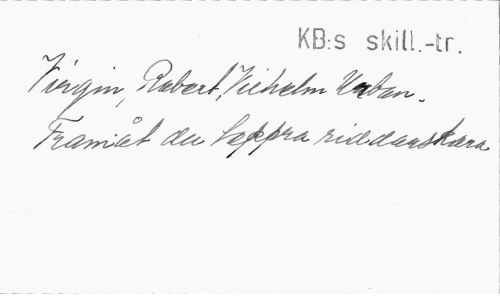 KB:s skill.-tr.
Virgin, Robert, Vilhelm Urban.
Framåt du tappra riddarskara